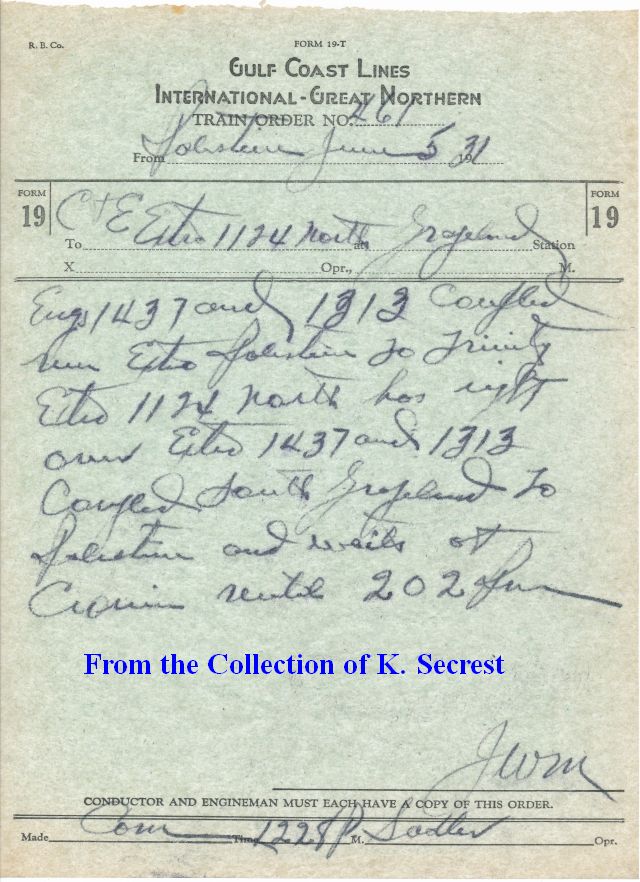 R. B. Co. FORM 19-T
GULF COAST LINES
INTERNATIONAL-GREAT NORTHERN
TRAIN ORDER NO. 461
From Palestine June 5 1931
FORM 19 FORM 19
To C+E Extra 1124 North at Grapeland Station
X Opr., M.
Engs 1437 and 1313 Coupled
run Extra Palestine to Trinity
Extra 1124 North has right
over Extra 1437 and 1313
Coupled South Grapeland to
Palestine and waits at
Cronin until 202 Pm
From the Collection of K. Secrest
JWM
CONDUCTOR AND ENGINEMAN MUST EACH HAVE A COPY OF THIS ORDER.
Made Com Time 1228 P M. Sadler Opr.